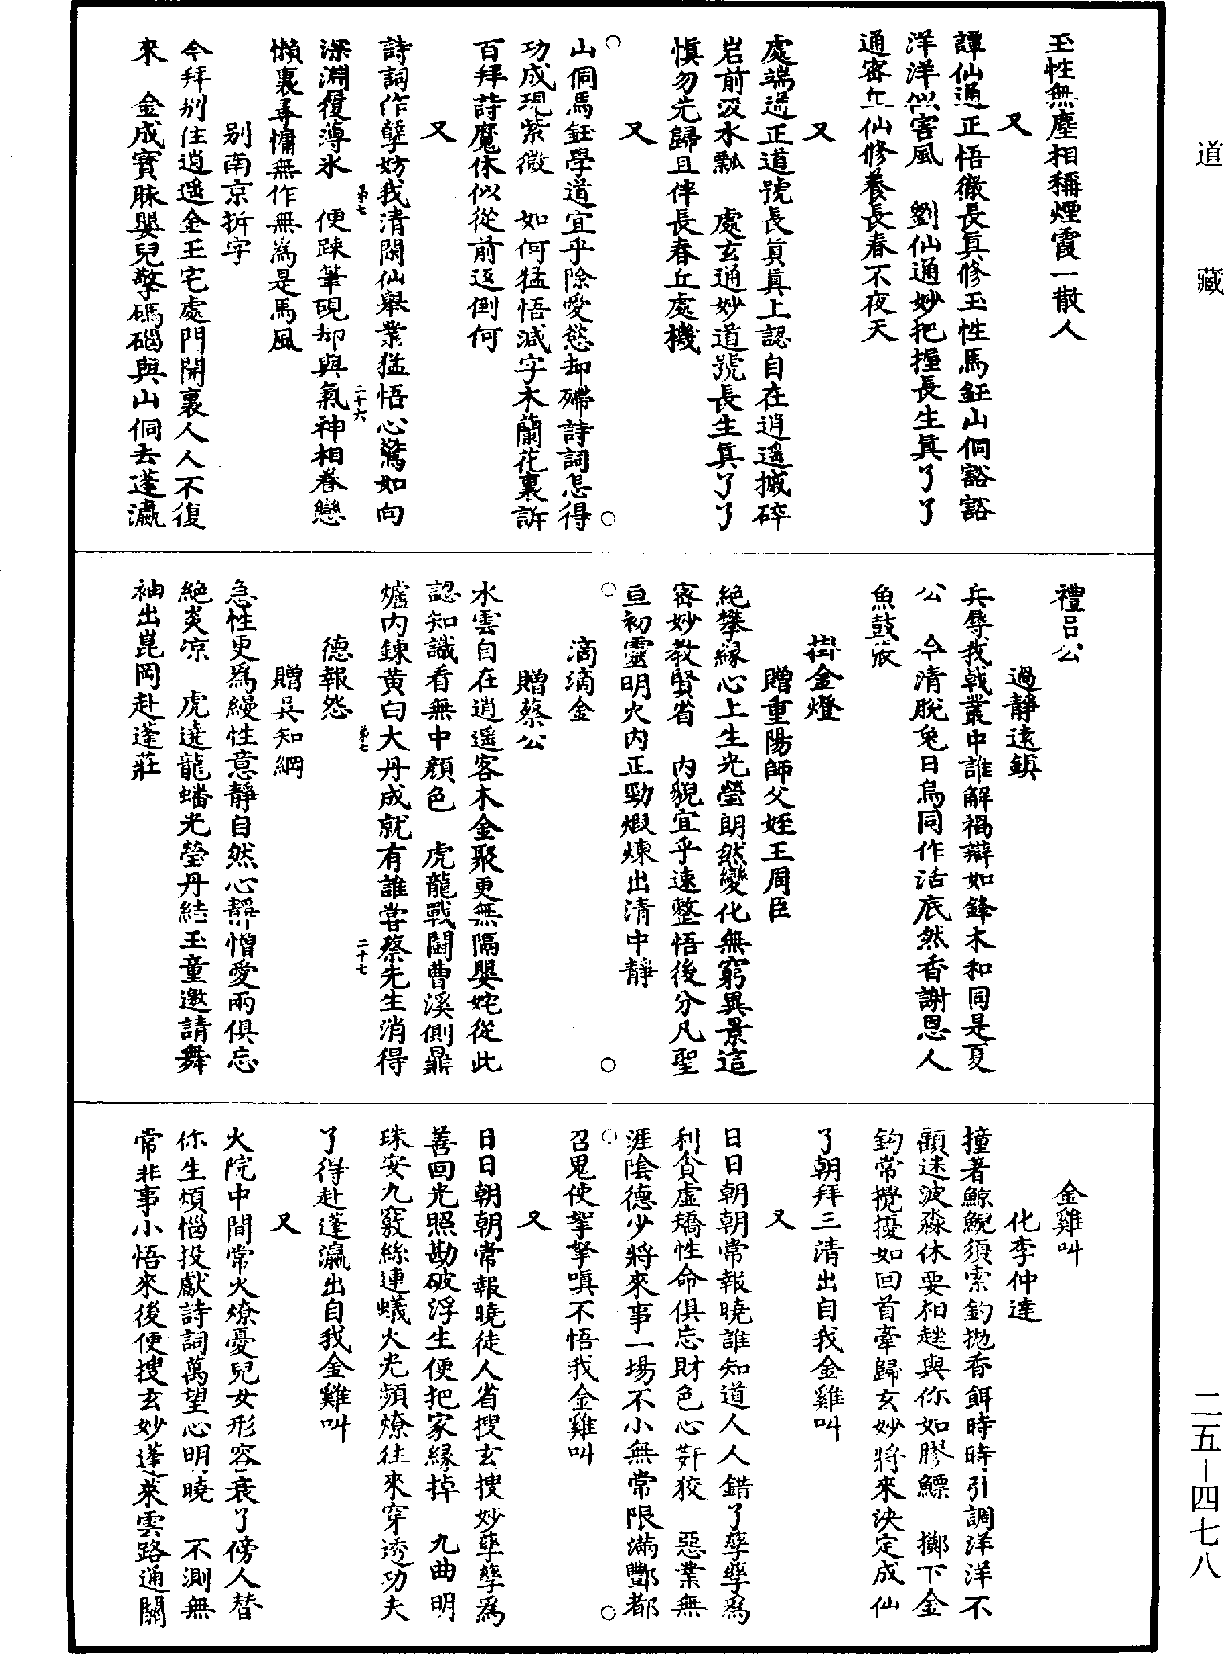 道藏
玉性無塵相稱煙霞一散人
又
譚仙通正悟徹長眞修玉性馬鈺山侗豁豁
洋洋似害風　劉仙通妙把握長生眞了了
通密丘仙修養長春不夜天
又
處端通正道號長眞眞上認自在逍遥摵碎
岩前汲水瓢　處玄通妙道號長生眞了了
愼勿先歸且伴長春丘處機
又
山侗馬鈺學道宜乎除愛慾却殢詩詞怎得
功成現紫微　如何猛悟減字木蘭花裏訴
百拜詩魔休似從前返倒何
又
詩詞作孽妨我清閑仙舉業猛悟心驚如向
深淵履薄氷　便踈筆硯却與氣神相眷戀
懶裏尋慵無作無爲是馬風
别南京折字
今拜别住逍遥金玉宅處門開裏人人不復
來　金成寳脉嬰兒擎碼碯與山侗去蓬瀛
第七
二十六
禮吕公
過靜遠鎮
兵辱我戟叢中誰解禍辯如鋒木和同是夏
公　今清脫兔日烏同作活底然香謝恩人
魚鼓
掛金燈
贈重陽師父姪王周臣
絶攀緣心上生光瑩朗然變化無窮異景這
密妙教賢省　内貌宜乎速整悟後分凡聖
亘初靈明火内正勁煆煉出清中靜
滴滴金
贈蔡公
水雲自在逍遥客木金聚更無隔嬰姹從此
認知識看無中顔色　虎龍戰鬬曹溪側鼎
爐内鍊黄白大丹成就有誰甞蔡先生消得
德報怨
贈吳知綱
急性更爲緩性意靜自然心靜憎愛兩俱忘
絶炎凉　虎遶龍蟠光瑩丹結玉童邀請舞
袖出崑岡赴蓬莊
第七
二十七
金雞叫
化李仲達
撞著鯨鯢須索釣抛香餌時時引調洋洋不
顧迷波淼休要相趖與你如膠鰾　擲下金
鈎常攪擾如回首牽歸玄妙將來決定成仙
了朝拜三清出自我金雞叫
又
日日朝朝常報曉誰知道人人錯了孳孳爲
利貪虚矯性命俱忘財色心姧狡　惡業無
涯隂德少將來事一場不小無常限滿酆都
召鬼使拏拏嗔不悟我金雞叫
又
日日朝朝常報曉徒人省搜玄搜妙孳孳爲
善回光照勘破浮生便把家緣掉　九曲明
珠安九竅絲連蟻火光頻燎往來穿透功夫
了得赴蓬瀛出自我金雞叫
又
火院中間常火燎憂兒女形容衰了傍人替
你生煩惱投獻詩詞萬望心明曉　不測無
常非事小悟來後便搜玄妙蓬萊雲路通關
二五－四七八